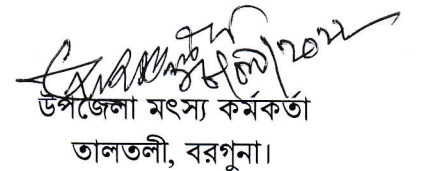 উপজেলা মৎস্য কর্মকর্তা
তালতলী, বরগুনা।